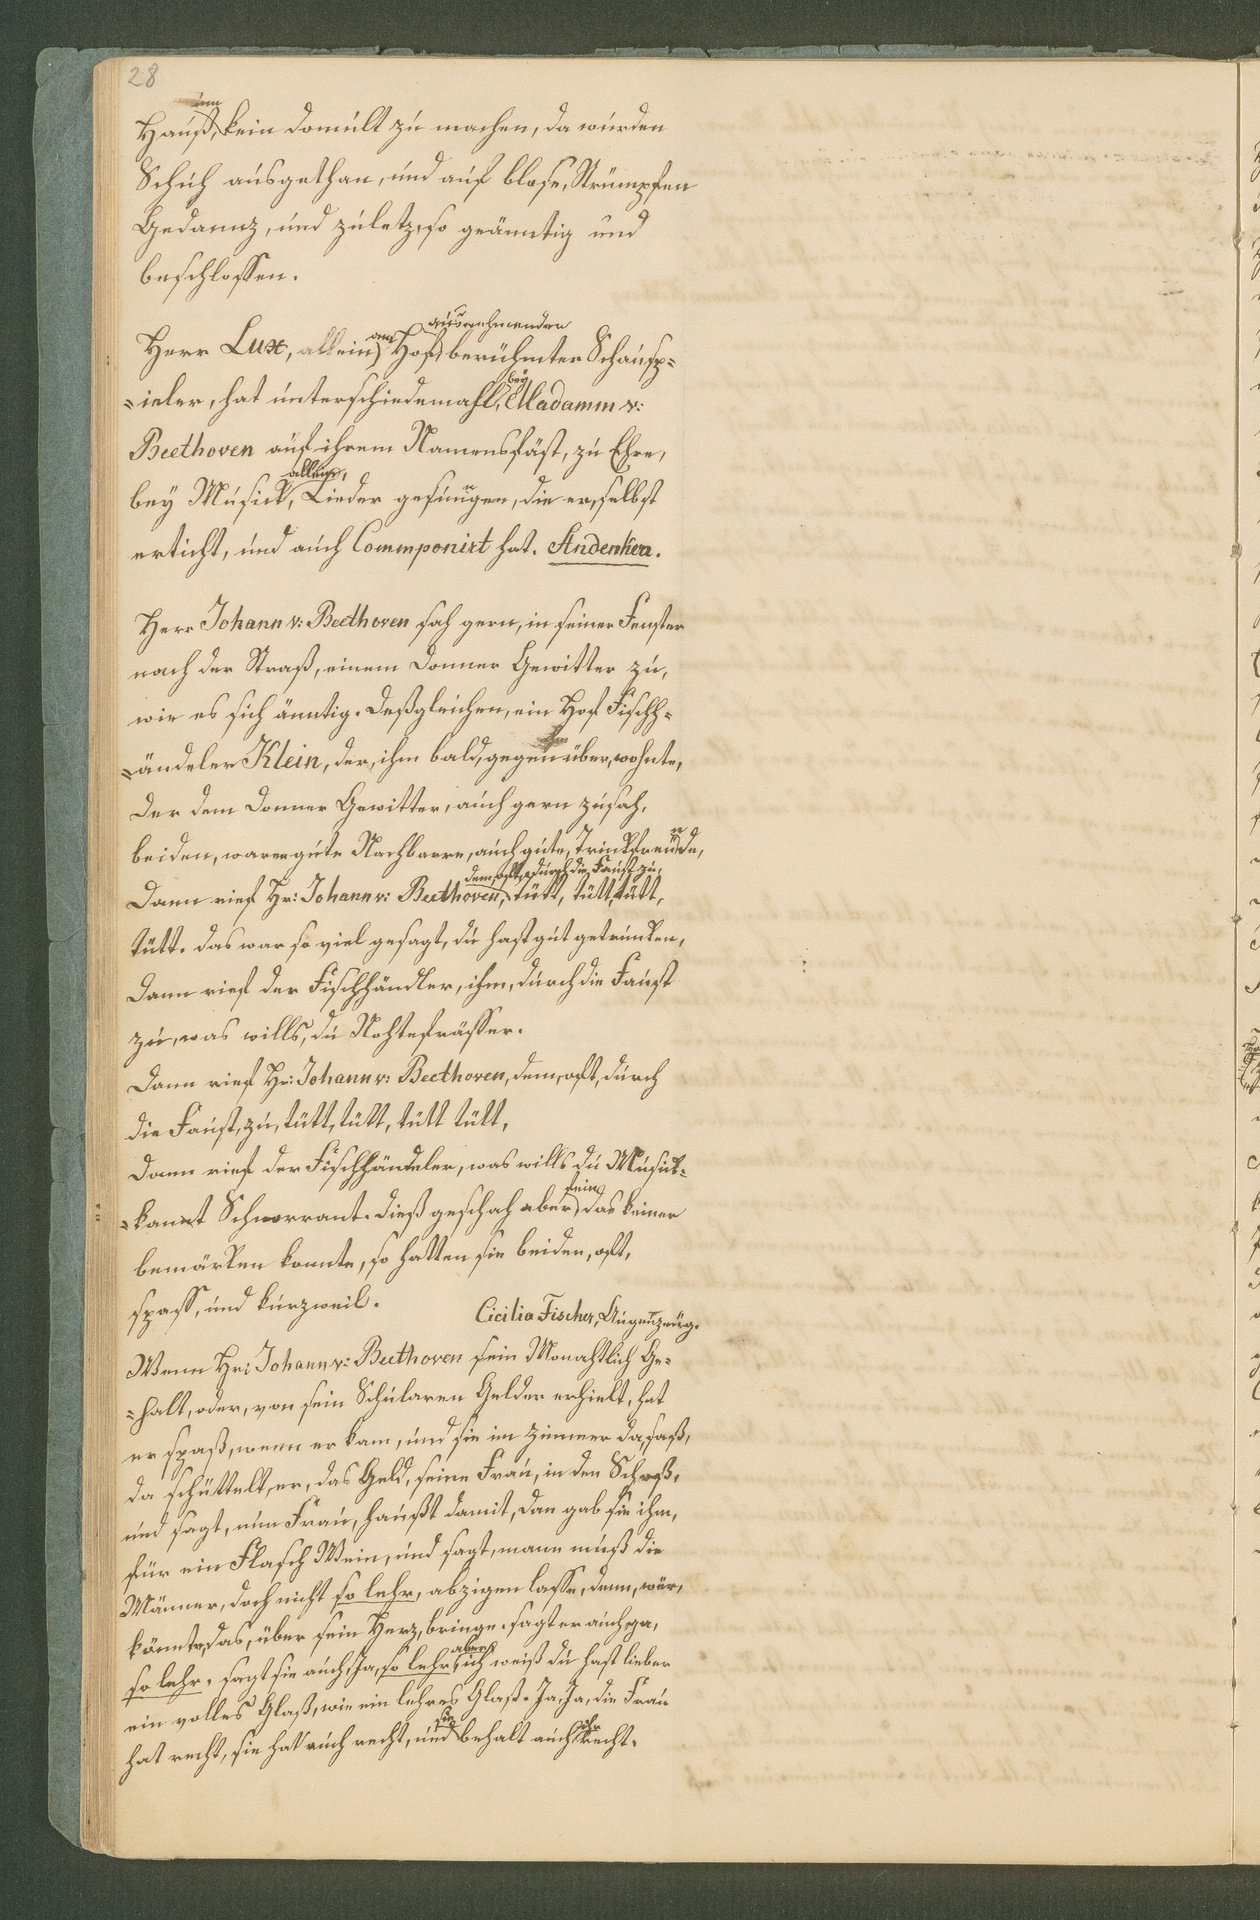 28
Hauß, um kein domult zu machen, da wurden
Schuh ausgethan, und auf blose, Strümpfen
Gedannz, und zuletz, so geänntig und
beschlossen.
Herr Lux, allein am Hof, ausnehmender berühmter Schausp=
=ieler, hat unterschiedemahl, bey Madamm v:
Beethoven auf ihrem Namensfäst, zu Ehre,
bey Musick, allein, Lieder gesungen, die er, selbst
erticht, und auch Commponirt hat. Andenken.
Herr Johann v: Beethoven sah gern, in seiner Fenster
nach der Straß, einem Donner Gewitter zu,
wie es sich änntig. Deßgleichen, ein Hof Fischh=
=ändeler Klein, der, ihm bald, gegenüber, wohnte,
Der dem Donner Gewitter, auch gern zusah,
beiden, waren gute Nachbaren, auch gute, Trinkfreunde,
Dann rief Hr: Johann v: Beethoven, dem, oft, durch die Faust zu, tütt, tütt, tütt,
tütt. das war so viel gesagt, du hast gut getrunken,
Dann rief der Fischhändler, ihm, durch die Faust
zu, was wills, du Nohtefrässer.
Dann rief Hr: Johann v: Beethoven, dem, oft, durch
die Faust, zu, tütt, tütt, tütt tütt,
Dann rief der Fischhändeler, was wills du Musick=
=kannt Schnorrant. Dieß geschah aber, fein, das keiner
bemärken konnte, so hatten sie beiden, oft,
spass, und kurzweil.
Cicilia Fischer, Augenzeug.
Wenn Hr: Johann v: Beethoven sein Monahtlich Ge=
=halt, oder, von sein Schularen Gelder erhielt, hat
er spaß, wenn er kam, und sie im Zimmer da, saß,
da schüttelt, er, das Geld, seine Frau, in den Schoß,
und sagt, nun Frau, haußt damit, dan gab sie ihm,
für ein Flasch Wein, und sagt, mann muß die
Männer, doch nicht so lehr, abzigen lasse, denn, wär,
könnte, das, über sein Herz, bringe. sagt er auch, ja,
so lehr, sagt sie auch, Ja, so lehr, aber ich weiß du hast lieber
ein volles Glaß, wie ein lehres Glaß. Ja, Ja, die Frau
hat recht, sie hat auch recht, und sie behalt auch ihr recht.